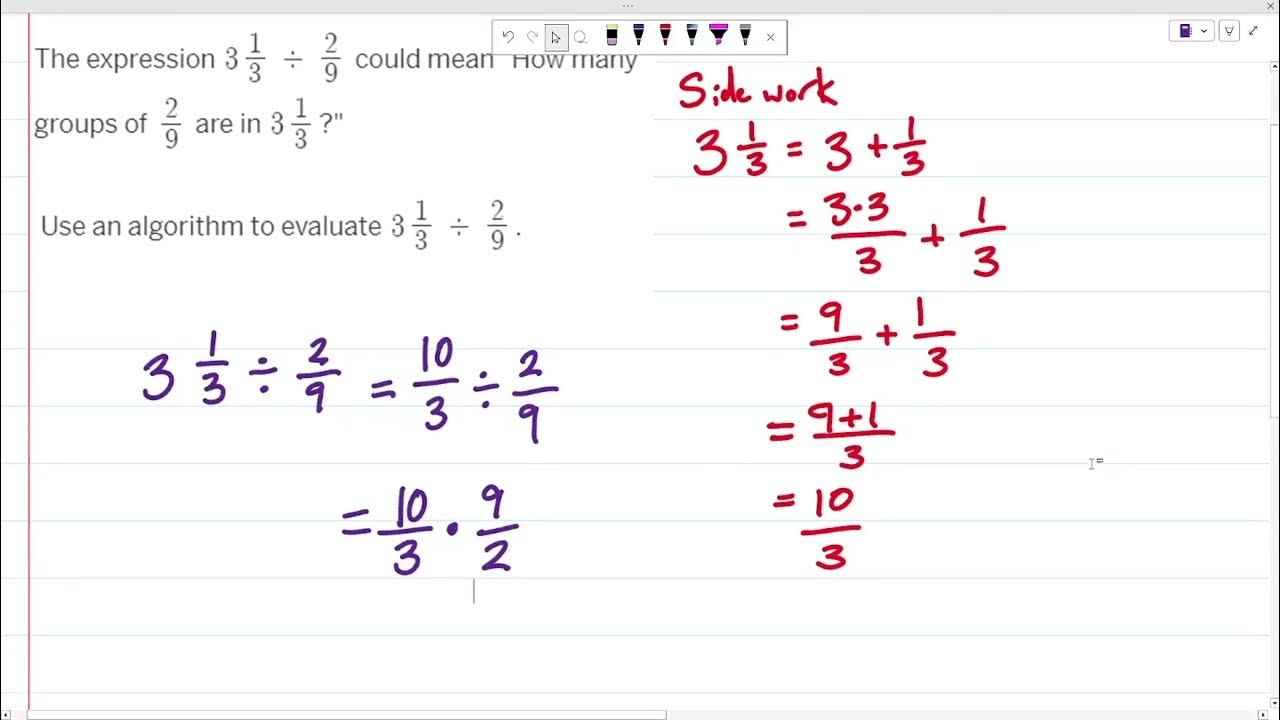 The expression 3 1/3 ÷ 2/9 could mean "How many
groups of 2/9 are in 3 1/3 ?"
Use an algorithm to evaluate 3 1/3 ÷ 2/9 .
3 1/3 ÷ 2/9 = 10/3 ÷ 2/9
= 10/3 · 9/2
Side work
3 1/3 = 3 + 1/3
= 3·3/3 + 1/3
= 9/3 + 1/3
= 9+1/3
= 10/3